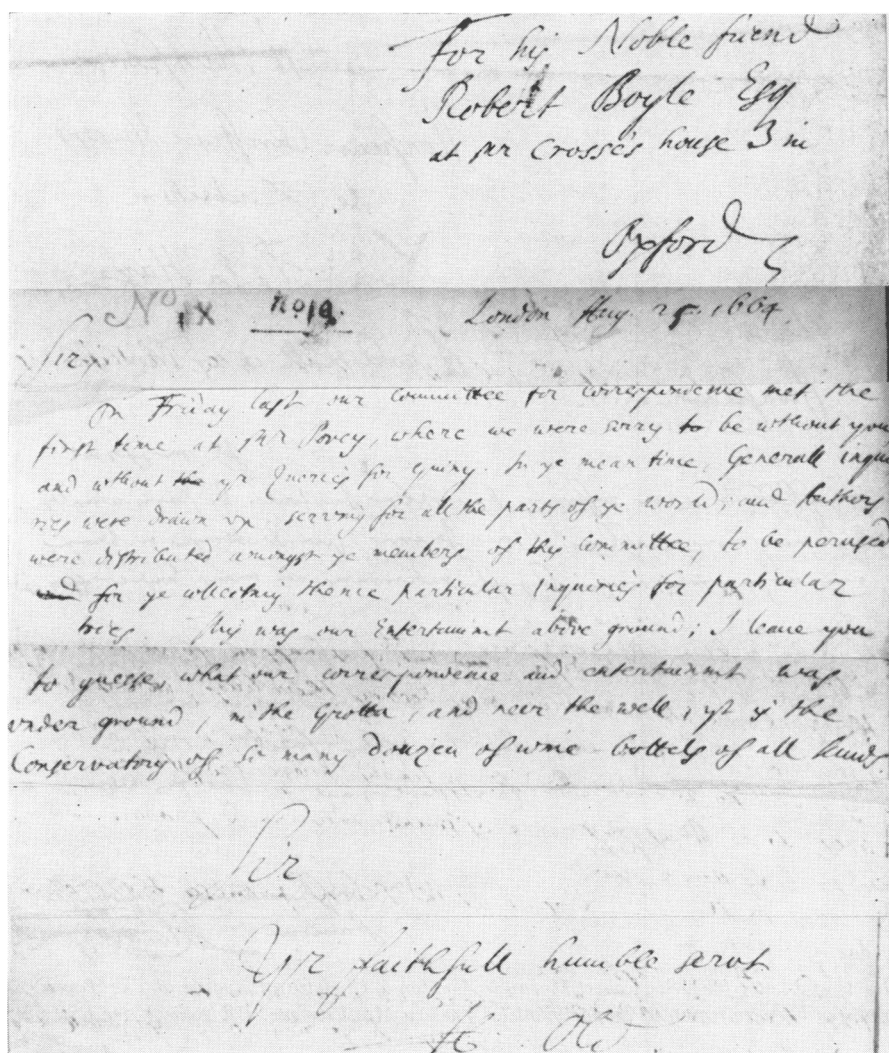 For his Noble friend
Robert Boyle Esq
at Mr Crosse's house in
Oxford
No IX No 19. London Aug. 25. 1664.
Sir
On Friday last our Committee for correspondence met the
first time at Mr Povey, where we were sorry to be without you
and without the yr Queries for Guiny. In ye mean time, Generall inqui
ries were drawn up, serving for all the parts of ye world; and Authors
were distributed amongst ye members of this Committee, to be perused
for ye collecting thence particular Inquiries for particular
tries. This was our Entertainmt above ground; I leave you
to guesse, what our correspondence and entertainmt was
under ground, in the Grotta, and neere the well, yt is the
Conservatory of so many douzen of wine-bottels of all kinds.
Sir
Yr faithfull humble servt
H. Old.